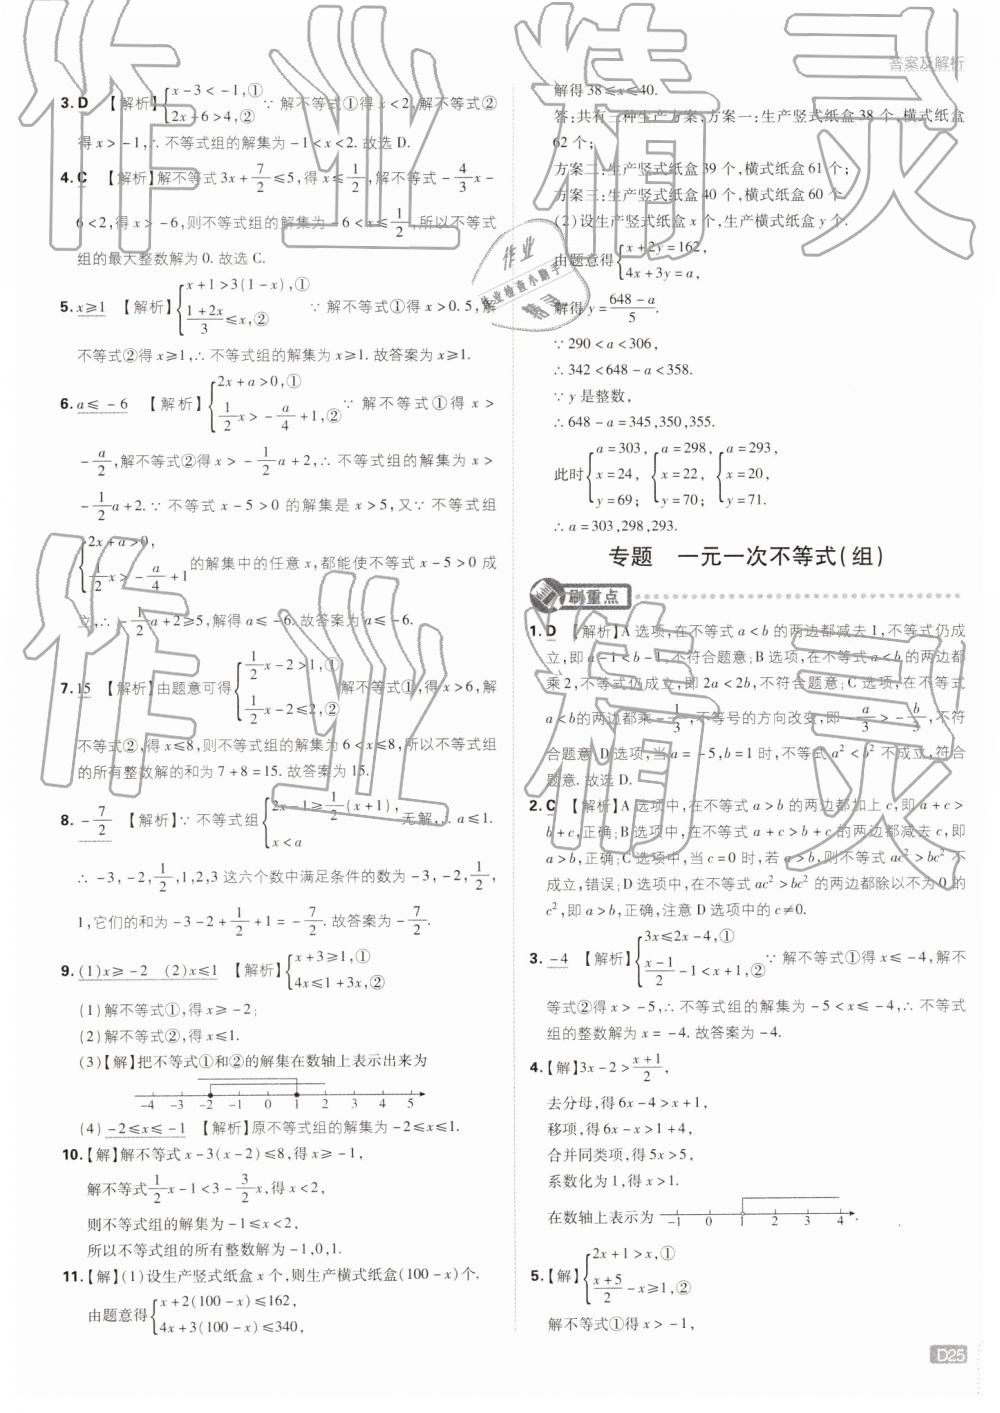 答案及解析
3. D 【解析】{x-3<-1,① 2x+6>4,② ∵ 解不等式①得 x<2,解不等式②
得 x>-1,∴ 不等式组的解集为 -1<x<2. 故选 D.
4. C 【解析】解不等式 3x+7/2≤5,得 x≤1/2,解不等式 -4/3x-
6<2,得 x>-6,则不等式组的解集为 -6<x≤1/2,所以不等式
组的最大整数解为 0. 故选 C.
5. x≥1 【解析】{x+1>3(1-x),① (1+2x)/3≤x,② ∵ 解不等式①得 x>0.5,解
不等式②得 x≥1,∴ 不等式组的解集为 x≥1. 故答案为 x≥1.
6. a≤-6 【解析】{2x+a>0,① 1/2x>-a/4+1,② ∵ 解不等式①得 x>
-a/2,解不等式②得 x>-1/2a+2,∴ 不等式组的解集为 x>
-1/2a+2. ∵ 不等式 x-5>0 的解集是 x>5,又∵ 不等式组
{2x+a>0, 1/2x>-a/4+1 的解集中的任意 x,都能使不等式 x-5>0 成
立,∴ -1/2a+2≥5,解得 a≤-6. 故答案为 a≤-6.
7. 15 【解析】由题意可得{1/2x-2>1,① 1/2x-2≤2,② 解不等式①,得 x>6,解
不等式②,得 x≤8,则不等式组的解集为 6<x≤8,所以不等式组
的所有整数解的和为 7+8=15. 故答案为 15.
8. -7/2 【解析】∵ 不等式组{2x-1≥1/2(x+1), x<a 无解,∴ a≤1.
∴ -3,-2,1/2,1,2,3 这六个数中满足条件的数为 -3,-2,1/2,
1,它们的和为 -3-2+1/2+1=-7/2. 故答案为 -7/2.
9. (1)x≥-2 (2)x≤1 【解析】{x+3≥1,① 4x≤1+3x,②
(1)解不等式①,得 x≥-2;
(2)解不等式②,得 x≤1.
(3)【解】把不等式①和②的解集在数轴上表示出来为
-4 -3 -2 -1 0 1 2 3 4 5
(4) -2≤x≤-1 【解析】原不等式组的解集为 -2≤x≤1.
10. 【解】解不等式 x-3(x-2)≤8,得 x≥-1,
解不等式1/2x-1<3-3/2x,得 x<2,
则不等式组的解集为 -1≤x<2,
所以不等式组的所有整数解为 -1,0,1.
11. 【解】(1)设生产竖式纸盒 x 个,则生产横式纸盒(100-x)个.
由题意得{x+2(100-x)≤162, 4x+3(100-x)≤340,
解得 38≤x≤40.
答:共有三种生产方案,方案一:生产竖式纸盒 38 个,横式纸盒
62 个;
方案二:生产竖式纸盒 39 个,横式纸盒 61 个;
方案三:生产竖式纸盒 40 个,横式纸盒 60 个.
(2)设生产竖式纸盒 x 个,生产横式纸盒 y 个.
由题意得{x+2y=162, 4x+3y=a,
解得 y=(648-a)/5.
∵ 290<a<306,
∴ 342<648-a<358.
∵ y 是整数,
∴ 648-a=345,350,355.
此时{a=303, x=24, y=69; {a=298, x=22, y=70; {a=293, x=20, y=71.
∴ a=303,298,293.
专题 一元一次不等式(组)
刷重点
1. D 【解析】A 选项,在不等式 a<b 的两边都减去 1,不等式仍成
立,即 a-1<b-1,不符合题意;B 选项,在不等式 a<b 的两边都
乘 2,不等式仍成立,即 2a<2b,不符合题意;C 选项,在不等式
a<b的两边都乘 -1/3,不等号的方向改变,即 -a/3>-b/3,不符
合题意;D 选项,当 a=-5,b=1 时,不等式 a²<b² 不成立,符合
题意. 故选 D.
2. C 【解析】A 选项中,在不等式 a>b 的两边都加上 c,即 a+c>
b+c,正确;B 选项中,在不等式 a+c>b+c 的两边都减去 c,即
a>b,正确;C 选项中,当 c=0 时,若 a>b,则不等式 ac²>bc² 不
成立,错误;D 选项中,在不等式 ac²>bc² 的两边都除以不为 0 的
c²,即 a>b,正确,注意 D 选项中的 c≠0.
3. -4 【解析】{3x≤2x-4,① (x-1)/2-1<x+1,② ∵ 解不等式①得 x≤-4,解不
等式②得 x>-5,∴ 不等式组的解集为 -5<x≤-4,∴ 不等式
组的整数解为 x=-4. 故答案为 -4.
4. 【解】3x-2>(x+1)/2,
去分母,得 6x-4>x+1,
移项,得 6x-x>1+4,
合并同类项,得 5x>5,
系数化为 1,得 x>1.
在数轴上表示为 -1 0 1 2 3 4 .
5. 【解】{2x+1>x,① (x+5)/2-x≥1,②
解不等式①得 x>-1,
D25
作业精灵
作业精灵
作业
作业检查小助手
精灵